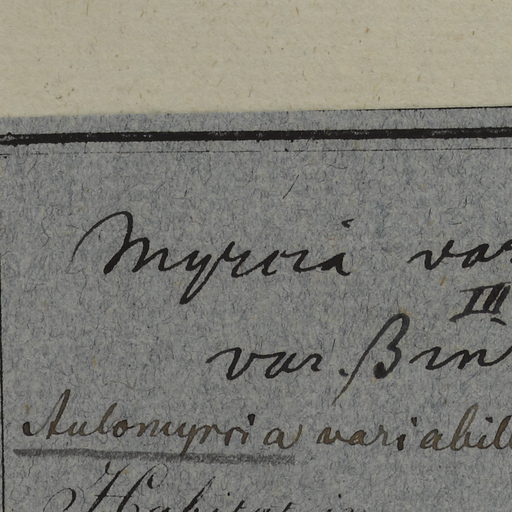 Myrcia var
III
var. β
Aulomyrcia variabil
Habitat in